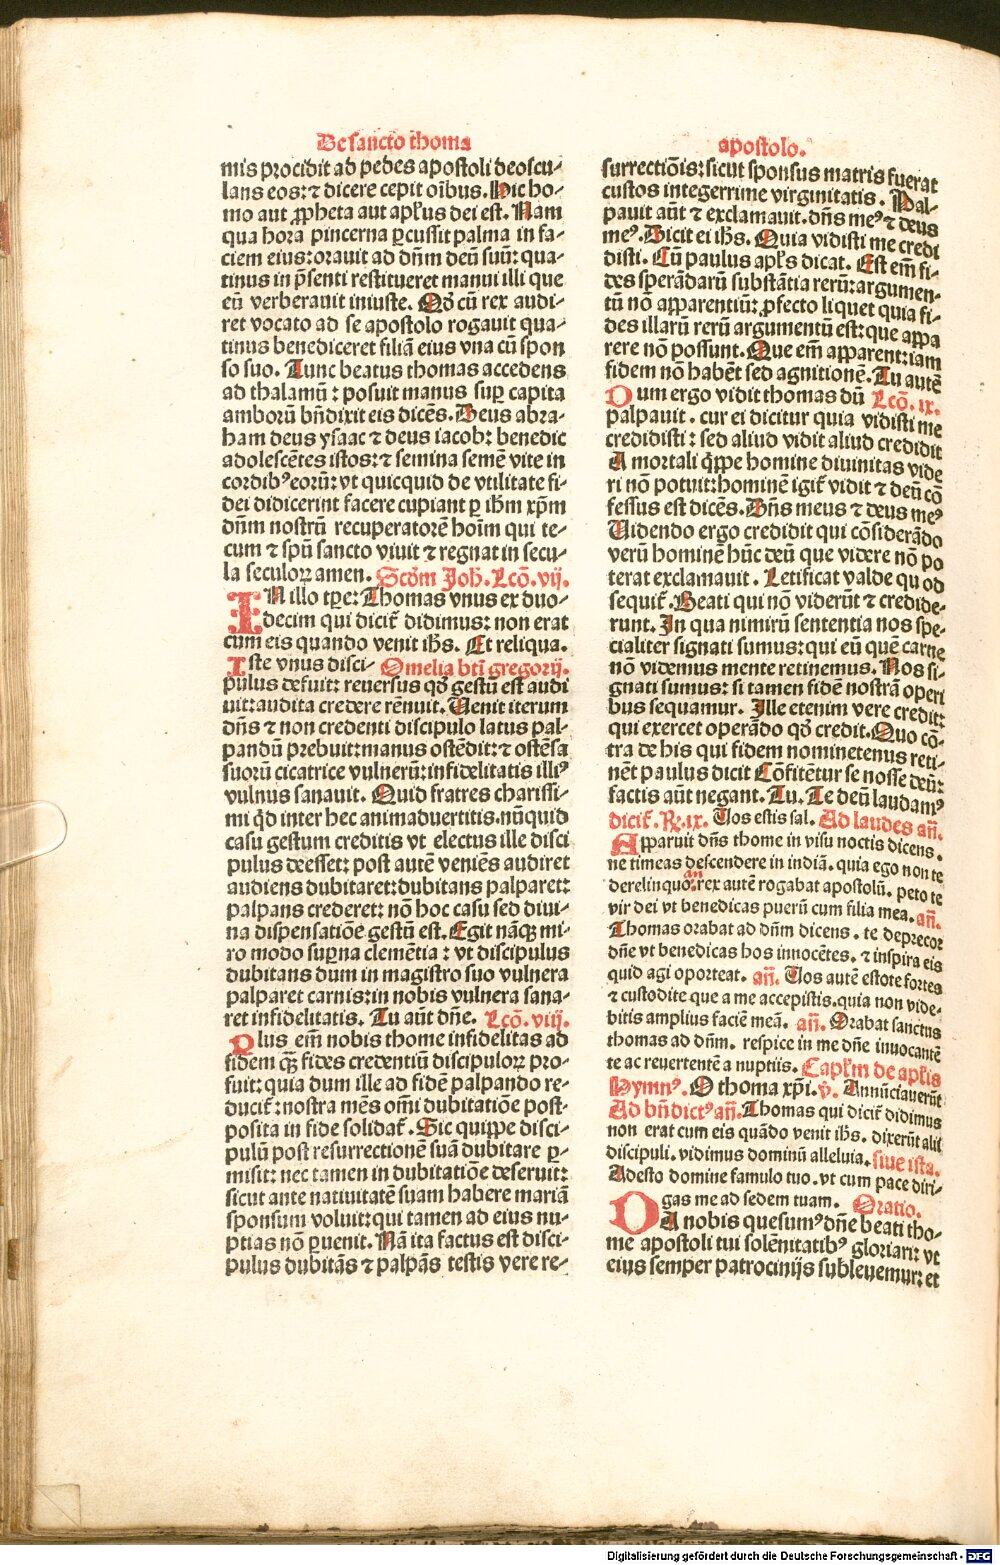 De sancto thoma
mis procidit ad pedes apostoli deoscu-
lans eos: ⁊ dicere cepit oı̄bus. Hic ho-
mo aut ꝓpheta aut apl̄us dei est. Nam
qua hora pincerna ꝑcussit palma in fa-
ciem eius: orauit ad dn̄m deū suū: qua-
tinus in p̄senti restitueret manui illi que
eū verberauit iniuste. Qd̄ cū rex audi-
ret vocato ad se apostolo rogauit qua-
tinus benediceret filiā eius vna cū spon
so suo. Tunc beatus thomas accedens
ad thalamū : posuit manus suꝑ capita
amborū bn̄dixit eis dicēs. Deus abra-
ham deus ysaac ⁊ deus iacob: benedic
adolescētes istos: ⁊ semina semē vite in
cordibꝰ eorū: vt quicquid de vtilitate fi-
dei didicerint facere cupiant ꝑ ihm̄ xp̄m
dn̄m nostrū recuperatorē hoīm qui te-
cum ⁊ spū sancto viuit ⁊ regnat in secu-
la seculoꝝ amen. Scd̄m Joh̄. Lcō. vij.
IN illo tꝑe: Thomas vnus ex duo-
decim qui dicit̄ didimus: non erat
cum eis quando venit ih̄s. Et reliqua.
Iste vnus disci- Omelia bt̄i gregorij.
pulus defuit: reuersus qd̄ gestū est audi
uit: audita credere rēnuit. Venit iterum
dn̄s ⁊ non credenti discipulo latus pal-
pandū prebuit: manus ostēdit: ⁊ ostēsa
suorū cicatrice vulnerū: infidelitatis illiꝰ
vulnus sanauit. Quid fratres charissi-
mi qd̄ inter hec animaduertitis. nūquid
casu gestum creditis vt electus ille disci
pulus deesset: post autē veniēs audiret
audiens dubitaret: dubitans palparet:
palpans crederet: nō hoc casu sed diui-
na dispensatiōe gestū est. Egit nāqꝫ mi-
ro modo suꝑna clemētia : vt discipulus
dubitans dum in magistro suo vulnera
palparet carnis: in nobis vulnera sana-
ret infidelitatis. Tu aūt dn̄e. Lcō. viij.
Plus em̄ nobis thome infidelitas ad
fidem qꝫ fides credentiū discipuloꝝ pro-
fuit: quia dum ille ad fidē palpando re-
ducit̄ : nostra mēs om̄i dubitatiōe post-
posita in fide solidat̄. Sic quippe disci-
pulū post resurrectionē suā dubitare ꝑ-
misit: nec tamen in dubitatiōe deseruit:
sicut ante natiuitatē suam habere mariā
sponsum voluit: qui tamen ad eius nu-
ptias nō ꝑuenit. Nā ita factus est disci-
pulus dubitās ⁊ palpās testis vere re-
apostolo.
surrectiōis: sicut sponsus matris fuerat
custos integerrime virginitatis. Pal-
pauit aūt ⁊ exclamauit. dn̄s meꝰ ⁊ deus
meꝰ. Dicit ei ih̄s. Quia vidisti me credi
disti. Cū paulus apl̄s dicat. Est em̄ fi-
des sperādarū substātia rerū: argumen-
tū nō apparentiū: ꝓfecto liquet quia fi-
des illarū rerū argumentū est: que appa
rere nō possunt. Que em̄ apparent: iam
fidem nō habēt sed agnitionē. Tu autē
Dum ergo vidit thomas dū Lcō. ix.
palpauit. cur ei dicitur quia vidisti me
credidisti : sed aliud vidit aliud credidit
A mortali q̄ppe homine diuinitas vide
ri nō potuit: hominē igit̄ vidit ⁊ deū cō
fessus est dicēs. Dn̄s meus ⁊ deus meꝰ
Videndo ergo credidit qui cōsiderādo
verū hominē hūc deū que videre nō po
terat exclamauit. Letificat valde quod
sequit̄. Beati qui nō viderūt ⁊ credide-
runt. In qua nimirū sententia nos spe-
cialiter signati sumus: qui eū quē carne
nō videmus mente retinemus. Nos si-
gnati sumus: si tamen fidē nostrā operi
bus sequamur. Ille etenim vere credit:
qui exercet operādo qd̄ credit. Quo cō-
tra de his qui fidem nominetenus reti-
nēt paulus dicit Cōfitētur se nosse deū:
factis aūt negant. Tu. Te deū laudamꝰ
dicit̄. ℟. ix. Vos estis sal. Ad laudes an̄.
Apparuit dn̄s thome in visu noctis dicens.
ne timeas descendere in indiā. quia ego non te
derelinquo. an̄ rex autē rogabat apostolū. peto te
vir dei vt benedicas puerū cum filia mea. an̄.
Thomas orabat ad dn̄m dicens. te deprecor
dn̄e vt benedicas hos innocētes. ⁊ inspira eis
quid agi oporteat. an̄. Vos autē estote fortes
⁊ custodite que a me accepistis. quia non vide-
bitis amplius faciē meā. an̄. Orabat sanctus
thomas ad dn̄m. respice in me dn̄e inuocantē
te ac reuertentē a nuptijs. Capl̄m de apl̄is
Hymnꝰ. O thoma xp̄i. ℣. Annūciauerūt
Ad bn̄dictꝰ an̄. Thomas qui dicit̄ didimus
non erat cum eis quādo venit ih̄s. dixerūt alii
discipuli. vidimus dominū alleluia. siue ista.
Adesto domine famulo tuo. vt cum pace diri-
gas me ad sedem tuam. Oratio.
DA nobis quesumꝰ dn̄e beati tho-
me apostoli tui solēnitatibꝰ gloriari: vt
eius semper patrocinijs subleuemur: et
Digitalisierung gefördert durch die Deutsche Forschungsgemeinschaft - DFG